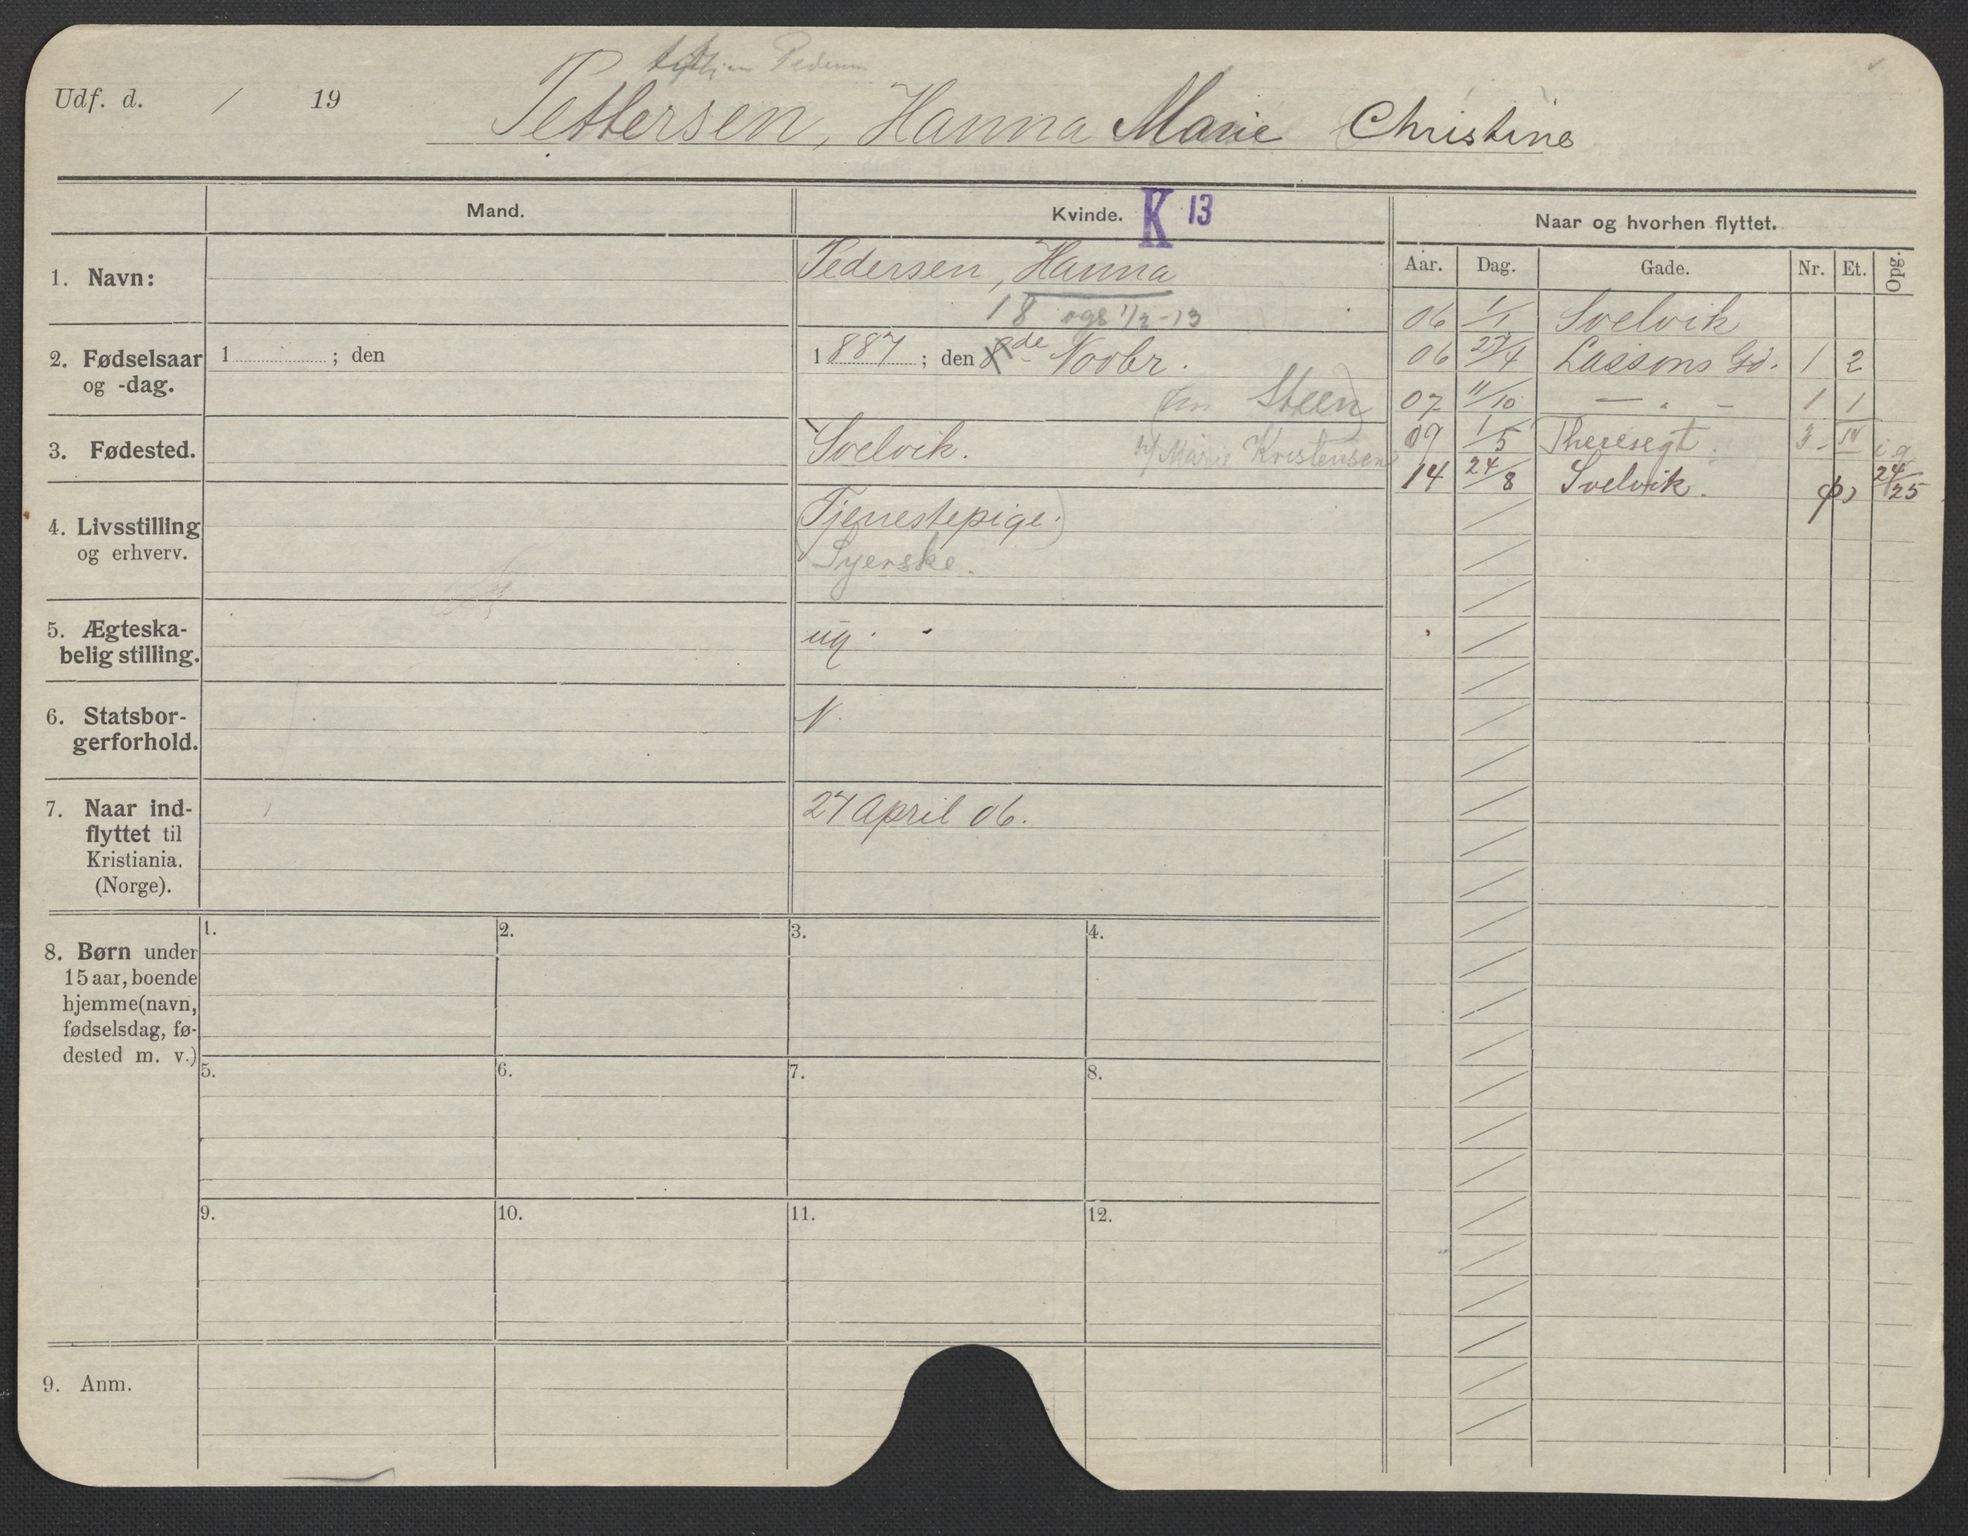 Pedersen
Udf. d. / 19
Pettersen, Hanna Marie Christine
Mand.
Kvinde. K 13
Naar og hvorhen flyttet.
Aar. Dag. Gade. Nr. Et. Opg.
1. Navn:
Pedersen, Hanna
18 ogs 1/2-13
2. Fødselsaar og -dag.
1 ; den
1887 ; den 8de Novbr.
Steen)
3. Fødested.
Svelvik.
Marie Kristensen
4. Livsstilling og erhverv.
(Tjenestepige.)
Syerske.
5. Ægteska-
belig stilling.
ug.
6. Statsbor-
gerforhold.
N.
7. Naar ind-
flyttet til
Kristiania.
(Norge).
27 April 06.
06 1/1 Svelvik
06 27/4 Lassons Gd. 1 2
07 11/10 — " — 1 1
09 1/5 Theresegt. 3 IV i g
14 24/8 Svelvik. 24/25
8. Børn under
15 aar, boende
hjemme (navn,
fødselsdag, fø-
dested m. v.)
1. 2. 3. 4.
5. 6. 7. 8.
9. 10. 11. 12.
9. Anm.